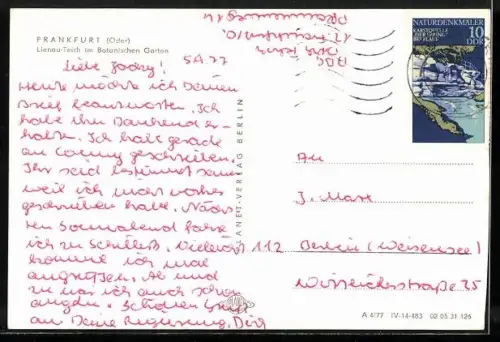 FRANKFURT (Oder)
Lienau-Teich im Botanischen Garten
5.4.77
Heute möchte ich Deinen
Brief beantworten. Ich
habe ihn dankend er-
halten. Ich habe gerade
an geschrieben.
Ihr seid bestimmt sauer
weil ich nicht vorher
geschrieben habe. Näch-
ten Sonnabend fahre
ich zu Vielleicht
komme ich mal
Ab und
zu war ich auch schon
angeln. Schönen Gruß
an Deine Regierung.
PLANET-VERLAG BERLIN
NATURDENKMÄLER
KARSTQUELLE
"DER SPRING"
BEI PLAUE
10
DDR
An
J. Marx
112 Berlin (Weissensee)
35
A 4/77 IV-14-483 02 05 31 126